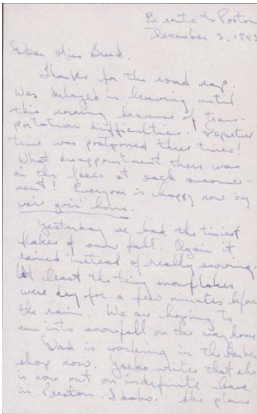 En route to Poston
December 3, 1943
Dear Miss Breed,
Thanks for the road map.
Was delayed in leaving until
this morning because of trans-
portation difficulties. Departure
time was postponed three times!
What disappointment there was
on the faces at each announce-
ment! Everyone is happy now cry
we're goin' home.
Yesterday we had the tiniest
flakes of snow fall. Again it
rained instead of really snowing.
At least the tiny snowflakes
were dry for a few minutes before
the rain. We are hoping to
run into snowfall on the way home.
Dad is working in the barber
shop now. writes that she
is now out on indefinite leave
in Preston, Idaho. She plans